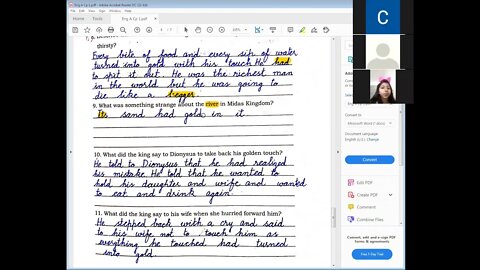 Eng A Cp L.pdf - Adobe Acrobat Reader DC (32-bit)
Home Tools
Eng A Cp L.pdf
thirsty?
Every bite of food and every sip of water
turned into gold with his touch. He had
to spit it out. He was the richest man
in the world but he was going to
die like a begger.
9. What was something strange about the river in Midas Kingdom?
Its sand had gold in it
10. What did the king say to Dionysus to take back his golden touch?
He told to Dionysus that he had realized
his mistake. He told that he wanted to
hold his daughter and wife and wanted
to eat and drink again.
11. What did the king say to his wife when she hurried forward him?
He stepped back with a cry and said
to his wife not to touch him as
everything he touched had turned
into gold.
C
Convert to
Microsoft Word (*.docx)
Document Language:
English (U.S.) Change
Convert
Edit PDF
Create PDF
Comment
Combine Files
Convert, edit and e-sign PDF
forms & agreements